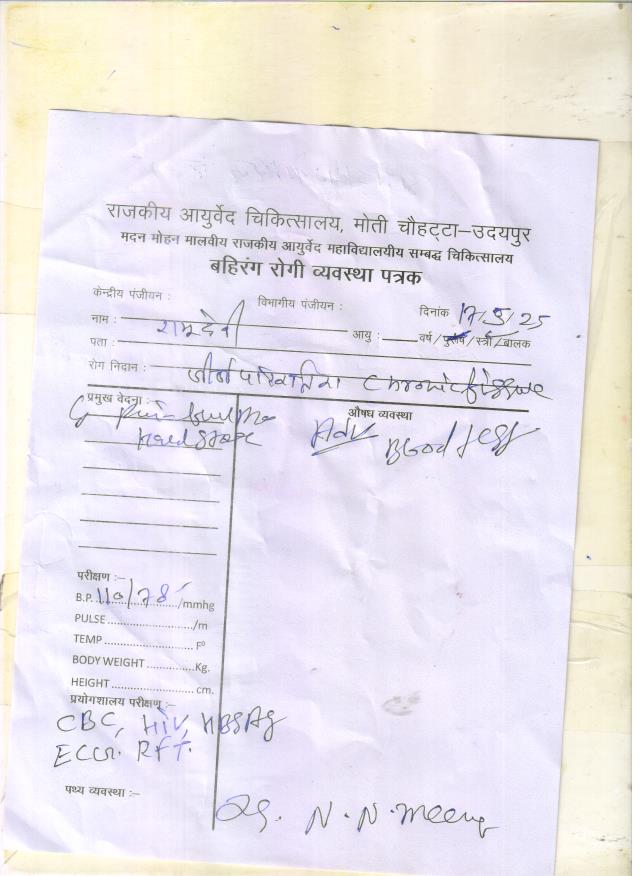 राजकीय आयुर्वेद चिकित्सालय, मोती चौहट्टा–उदयपुर
मदन मोहन मालवीय राजकीय आयुर्वेद महाविद्यालयीय सम्बद्ध चिकित्सालय
बहिरंग रोगी व्यवस्था पत्रक
केन्द्रीय पंजीयन : विभागीय पंजीयन : दिनांक 17/5/25
नाम : रामूदेवी आयु : वर्ष / पुरुष / स्त्री / बालक
पता :
रोग निदान : chronic fissure
प्रमुख वेदना :- औषध व्यवस्था
Adv Blood test
Hard stool
परीक्षण :–
B.P. 110/78 /mmhg
PULSE /m
TEMP F°
BODY WEIGHT Kg.
HEIGHT cm.
प्रयोगशालय परीक्षण :-
CBC, HIV, HBSAg
ECG. RFT.
पथ्य व्यवस्था :–
N. N. Meena